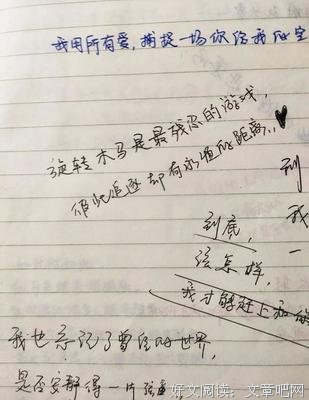 我用所有爱,捕捉一场你给我的空
旋转木马是最残忍的游戏,
彼此追逐却有永恒的距离,,
到
我
一
到底,
该怎样,
我才能赶上和你
我也忘记了曾经的世界,
是否安静得一片
好文阅读:文章吧网